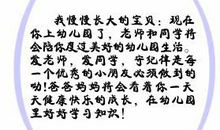 我慢慢长大的宝贝：现在
你上幼儿园了，老师和同学将
会陪你度过美好的幼儿园生活。
爱老师，爱同学，守纪律是每
一个优秀的小朋友必须做到的
呦！爸爸妈妈将会看着你一天
天健康快乐的成长，在幼儿园
里好好学习知识！